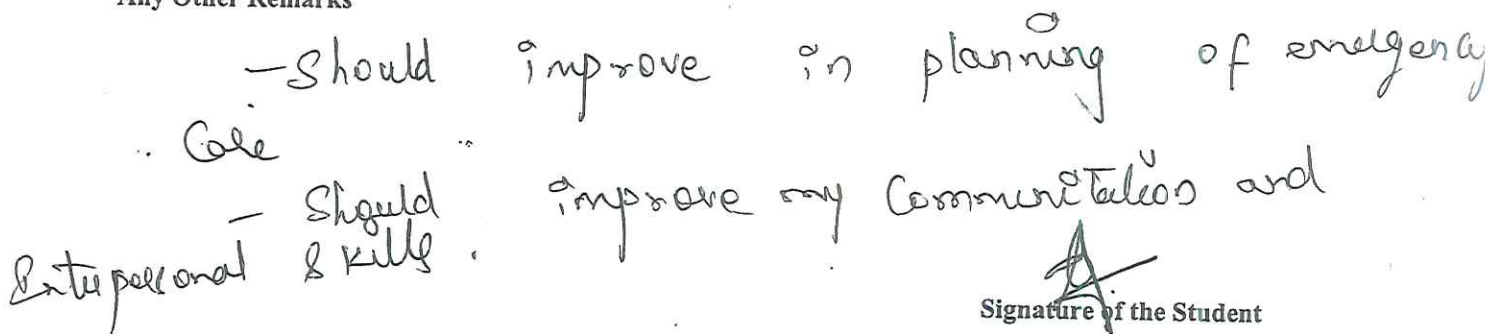 Any Other Remarks
- Should improve in planning of emergency
Care
- Should improve my Communication and
Interpersonal Skills.
Signature of the Student